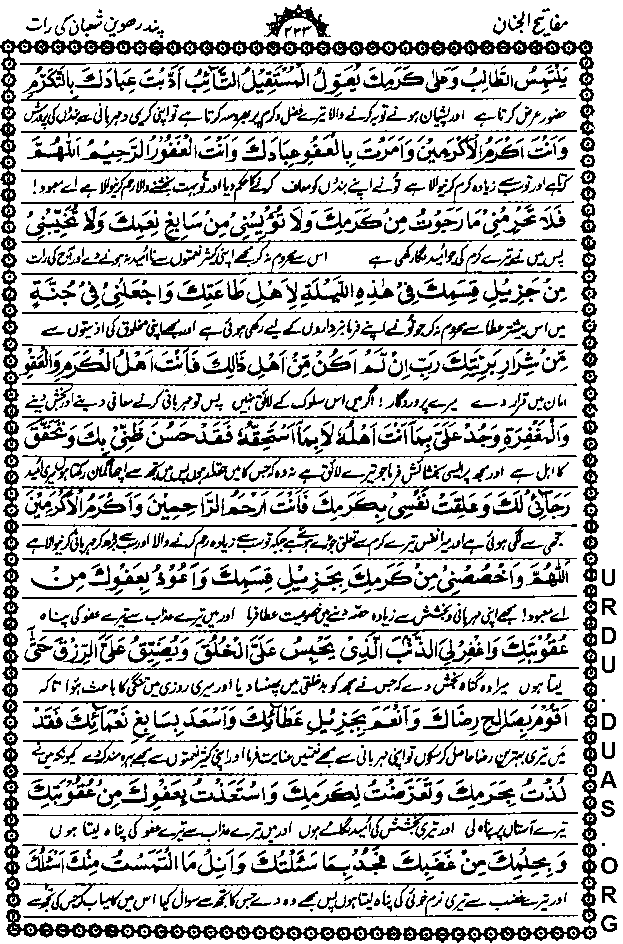 مفاتیح الجنان
۲۲۳
پندرھویں شعبان کی رات
يَلْتَمِسُ الطَّالِبُ وَعَلٰى كَرَمِكَ يُعَوِّلُ الْمُسْتَقِيْلُ التَّآئِبُ اَدَّبْتَ عِبَادَكَ بِالتَّكَرُّمِ
حضور عرض کرتا ہے اور پشیمان ہونے توبہ کرنے والا تیرے فضل و کرم پر بھروسہ کرتا ہے تو اپنی کرمی و مہربانی سے بندوں کی پرورش
وَاَنْتَ اَكْرَمُ الْاَكْرَمِيْنَ وَاَمَرْتَ بِالْعَفْوِ عِبَادَكَ وَاَنْتَ الْغَفُوْرُ الرَّحِيْمُ اَللّٰهُمَّ
کرتا ہے اور تو سب سے زیادہ کرم کرنیوالا ہے تو نے اپنے بندوں کو معاف کرنے کا حکم دیا اور تو بہت بخشنے والا رحم کرنیوالا ہے اے معبود!
فَلَا تَحْرِمْنِيْ مَا رَجَوْتُ مِنْ كَرَمِكَ وَلَا تُؤْيِسْنِيْ مِنْ سَابِغِ نِعَمِكَ وَلَا تُخَيِّبْنِيْ
پس میں نے تیرے کرم کی جو امید لگا رکھی ہے اس سے محروم نہ کر مجھے اپنی کثیر نعمتوں سے ناامید نہ ہونے دے اور آج کی رات
مِنْ جَزِيْلِ قِسَمِكَ فِيْ هٰذِهِ اللَّيْلَةِ لِاَهْلِ طَاعَتِكَ وَاجْعَلْنِيْ فِيْ جُنَّةٍ
میں اس بیشتر عطا سے محروم نہ کر جو تو نے اپنے فرمانبرداروں کے لیے رکھی ہوئی ہے اور مجھے اپنی مخلوق کی اذیتوں سے
مِّنْ شِرَارِ بَرِيَّتِكَ رَبِّ اِنْ لَّمْ اَكُنْ مِّنْ اَهْلِ ذَالِكَ فَاَنْتَ اَهْلُ الْكَرَمِ وَالْعَفْوِ
امان میں قرار دے میرے پروردگار! اگر میں اس سلوک کے لائق نہیں پس تو مہربانی کرنے معافی دینے اور بخش دینے
وَالْمَغْفِرَةِ وَجُدْ عَلَيَّ بِمَا اَنْتَ اَهْلُهٗ لَا بِمَا اَسْتَحِقُّهٗ فَقَدْ حَسُنَ ظَنِّيْ بِكَ وَتَحَقَّقَ
کا اہل ہے اور مجھ پر ایسی بخشائش فرما جو تیرے لائق ہے نہ وہ کہ جس کا میں حقدار ہوں پس میں تجھ سے اچھا گمان رکھتا ہوں میری امید
رَجَآئِيْ لَكَ وَعَلِقَتْ نَفْسِيْ بِكَرَمِكَ فَاَنْتَ اَرْحَمُ الرَّاحِمِيْنَ وَاَكْرَمُ الْاَكْرَمِيْنَ
تجھی سے لگی ہوئی ہے اور میرا نفس تیرے کرم سے تعلق جوڑے ہوئے ہے جبکہ تو سب سے زیادہ رحم کرنے والا اور سب سے بڑھ کر مہربانی کرنیوالا ہے
اَللّٰهُمَّ وَاخْصُصْنِيْ مِنْ كَرَمِكَ بِجَزِيْلِ قِسَمِكَ وَاَعُوْذُ بِعَفْوِكَ مِنْ
اے معبود! مجھے اپنی مہربانی و بخشش سے زیادہ حصہ دینے میں خصوصیت عطا فرما اور میں تیرے عذاب سے تیرے عفو کی پناہ
عُقُوْبَتِكَ وَاغْفِرْ لِيَ الذَّنْبَ الَّذِيْ يَحْبِسُ عَلَيَّ الْخُلُقَ وَيُضَيِّقُ عَلَيَّ الرِّزْقَ حَتّٰى
لیتا ہوں میرا وہ گناہ بخش دے کہ جس نے مجھ کو بدخلقی میں پھنسا دیا اور میری روزی میں تنگی کا باعث ہوا تاکہ
اَقُوْمَ بِصَالِحِ رِضَاكَ وَاَنْعَمَ بِجَزِيْلِ عَطَآئِكَ وَاَسْعَدَ بِسَابِغِ نَعْمَآئِكَ فَقَدْ
میں تیری بہترین رضا حاصل کر سکوں تو اپنی مہربانی سے مجھے نعمتیں عنایت فرما اور اپنی کثیر نعمتوں سے مجھے بہرہ مند کر دے کیونکہ میں نے
لُذْتُ بِحَرَمِكَ وَتَعَرَّضْتُ لِكَرَمِكَ وَاسْتَعَذْتُ بِعَفْوِكَ مِنْ عُقُوْبَتِكَ
تیرے آستاں پر پناہ لی اور تیری بخشش کی امید لگائے ہوں اور میں تیرے عذاب سے تیرے عفو کی پناہ لیتا ہوں
وَبِحِلْمِكَ مِنْ غَضَبِكَ فَجُدْ بِمَا سَئَلْتُكَ وَاَنِلْ مَا الْتَمَسْتُ مِنْكَ اَسْئَلُكَ
اور تیرے غضب سے تیری نرم خوئی کی پناہ لیتا ہوں پس مجھے وہ دے جس کا تجھ سے سوال کیا اس میں کامیاب کر جس کی تجھ سے
URDU.DUAS.ORG